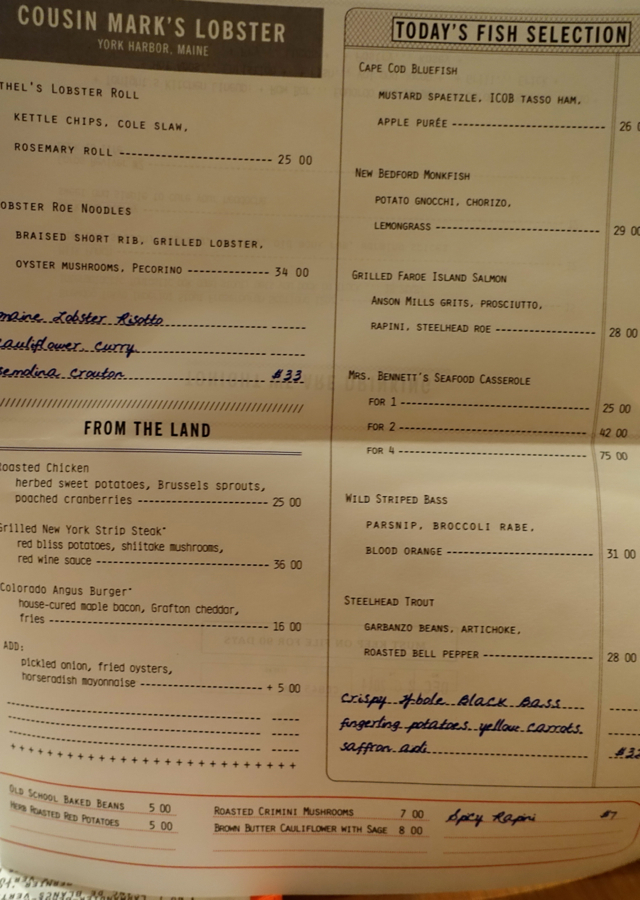 COUSIN MARK'S LOBSTER
YORK HARBOR, MAINE
THEL'S LOBSTER ROLL
KETTLE CHIPS, COLE SLAW,
ROSEMARY ROLL 25 00
OBSTER ROE NOODLES
BRAISED SHORT RIB, GRILLED LOBSTER,
OYSTER MUSHROOMS, PECORINO 34 00
maine Lobster Risotto
cauliflower, curry
semolina crouton $33
FROM THE LAND
Roasted Chicken
herbed sweet potatoes, Brussels sprouts,
poached cranberries 25 00
Grilled New York Strip Steak*
red bliss potatoes, shiitake mushrooms,
red wine sauce 36 00
Colorado Angus Burger*
house-cured maple bacon, Grafton cheddar,
fries 16 00
ADD:
pickled onion, fried oysters,
horseradish mayonnaise + 5 00
TODAY'S FISH SELECTION
CAPE COD BLUEFISH
MUSTARD SPAETZLE, ICOB TASSO HAM,
APPLE PURÉE 26 0
NEW BEDFORD MONKFISH
POTATO GNOCCHI, CHORIZO,
LEMONGRASS 29 00
GRILLED FAROE ISLAND SALMON
ANSON MILLS GRITS, PROSCIUTTO,
RAPINI, STEELHEAD ROE 28 00
MRS. BENNETT'S SEAFOOD CASSEROLE
FOR 1 25 00
FOR 2 42 00
FOR 4 75 00
WILD STRIPED BASS
PARSNIP, BROCCOLI RABE,
BLOOD ORANGE 31 00
STEELHEAD TROUT
GARBANZO BEANS, ARTICHOKE,
ROASTED BELL PEPPER 28 00
Crispy Whole Black Bass
fingerling potatoes, yellow carrots,
saffron aoli $32
OLD SCHOOL BAKED BEANS 5 00
HERB ROASTED RED POTATOES 5 00
ROASTED CRIMINI MUSHROOMS 7 00
BROWN BUTTER CAULIFLOWER WITH SAGE 8 00
Spicy Rapini $7